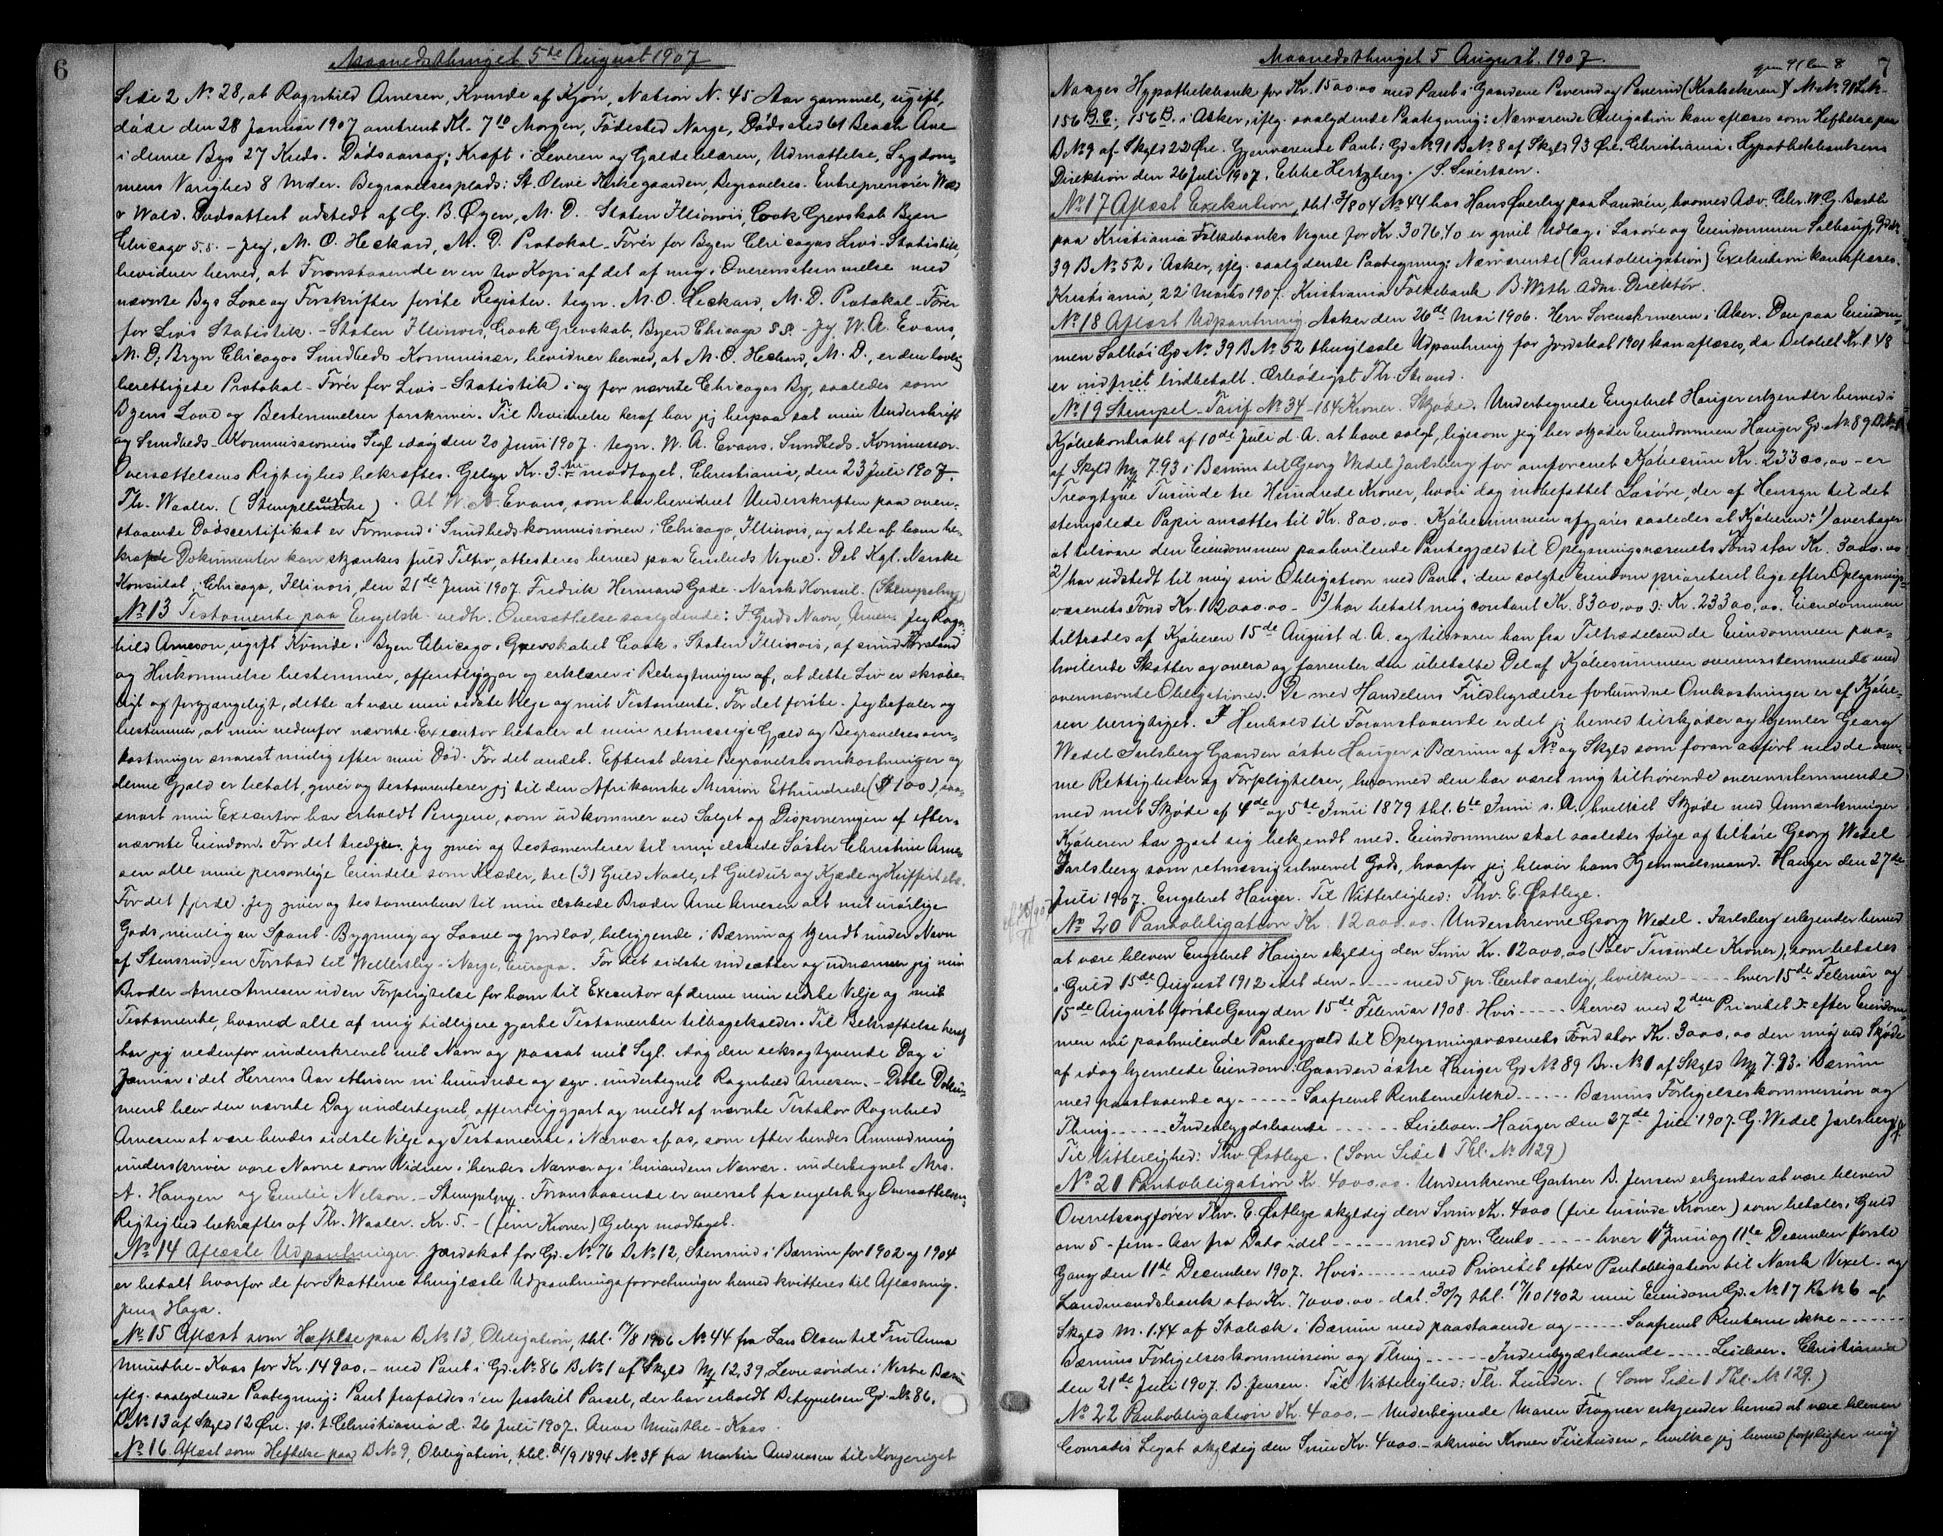 6
Maanedsthinget 5te August 1907
Side 2 No 28, at Ragnhild Arnesen, Kvinde af Kjøn, Nation N. 45 Aar gammel, ugift,
døde den 28 Januar 1907 omtrent Kl. 7 10 Morgen, Fødested Norge, Dødssted 61 Beach Ave
i denne Bys 27 Kreds. Dødsaarsag: Kræft i Leveren og Galdeblæren, Udmattelse, Sygdom-
mens Varighed 8 Mdr. Begravelsesplads: St. Olive Kirkegaarden, Begravelses-Entreprenører
& Wold. Dødsattest udstedt af G. B. Øyen, M. D. Staten Illionois, Cook Grevskab Byen
Chicago s.s. - Jeg, M. O. Heckard, M. D. Protokol-Fører for Byen Chicagos Livs-Statistik,
bevidner herved, at Foranstaaende er en tro Kopi af det af mig i Overensstemmelse med
nævnte Bys Love og Forskrifter førte Register. tegn. M. O. Heckard, M. D. Protokol-Fører
for Livs Statistik. - Staten Illinois, Cook Grevskab, Byen Chicago s.s. - Jeg W. A. Evans,
M. D, Byen Chicagos Sundheds Kommissær, bevidner herved, at M. O. Heckard, M. D., er den lovlig
berettigede Protokol-Fører for Livs-Statistik i og for nævnte Chicagos By, saaledes som
Byens Love og Bestemmelser forskriver. Til Bevidnelse heraf har jeg herpaa sat min Underskrift
og Sundheds-Kommissionens Segl idag den 20 Juni 1907. tegn. W. A. Evans. Sundheds-Kommissær.
Oversættelsens Rigtighed bekræftes. Gebyr Kr. 3 modtaget. Christiania, den 23 Juli 1907.
Th. Waaler. (Stempel). At W. A. Evans, som har bevidnet Underskriften paa oven-
staaende Dødscertifikat er Formand i Sundhedskommissionen i Chicago, Illinois, og at de af ham be-
kræftede Dokumenter kan skjænkes fuld Tiltro, attesteres herved paa Embeds Vegne. Det Kgl. Norske
Konsulat i Chicago, Illinois, den 21de Juni 1907. Fredrik Herman Gade. Norsk Konsul.
No 13 Testamente paa Engelsk vedh. Oversættelse saalydende: I Guds Navn, Amen. Jeg Ragn-
hild Arneson, ugift Kvinde i Byen Chicago i Grevskabet Cook i Staten Illinois, af sund Forstand
og Hukommelse bestemmer, offentliggjør og erklærer i Betragtningen af, at dette Liv er skrøbe-
ligt og forgjængeligt, dette at være min sidste Vilje og mit Testamente. For det første. Jeg befaler og
bestemmer, at min nedenfor nævnte Executor betaler al min retmæssige Gjæld og Begravelsesom-
kostninger snarest mulig efter min Død. For det andet. Efterat disse Begravelsesomkostninger og
denne Gjæld er betalt, giver og testamenterer jeg til den Afrikanske Mission Ethundrede ($ 100), saa-
snart min Executor har erholdt Pengene, som udkommer ved Salget og Disponeringen af efter-
nævnte Eiendom. For det tredje. Jeg giver og testamenterer til min elskede Søster Christine Arne-
sen alle mine personlige Eiendele som Klæder, tre (3) Guld Naale, et Guldur og Kjæde og Kuffert etc.
For det fjerde. Jeg giver og testamenterer til min elskede Broder Arne Arnesen alt mit urørlige
Gods, nemlig en Bygning og Laave og jordlod, beliggende i Bærum og kjendt under Navn
af Stensrud, en Forstad til Norge, Europa. For det sidste indsætter og udnævner jeg min
Broder Arne Arnesen uden Forpligtelse for ham til Executor af denne min sidste Vilje og mit
Testamente, hvorved alle af mig tidligere gjorte Testamenter tilbagekaldes. Til Bekræftelse heraf
har jeg nedenfor underskrevet mit Navn og passat mit Segl idag den seksogtyvende Dag i
Januar i det Herrens Aar etthusen ni hundrede og syv. undertegnet Ragnhild Arnesen. - Dette Doku-
ment blev den nævnte Dag undertegnet, offentliggjort og meldt af nævnte Testator Ragnhild
Arnesen at være hendes sidste Vilje og Testamente i Nærvær af os, som efter hendes Anmodning
underskriver vore Navne som Vidner i hendes Nærvær og i hinandens Nærvær. undertegnet Mrs.
A. Haugen og Emilie Nelson. - Stempling. Foranstaaende er oversat fra engelsk og Oversættelsens
Rigtighed bekræftes af Th. Waaler. Kr. 5. - (fem Kroner) Gebyr modtaget.
No 14 Aflæste Udpantninger. Jordskat for Gd. No 76 B No 12, Stensrud i Bærum for 1902 og 1904
er betalt hvorfor de for Skatterne thinglæste Udpantningsforretninger herved kvitteres til Aflæsning.
Jens Haga.
No 15 Aflæst som Hæftelse paa B No 13, Obligation, thl. 17/8 1906 No 44 fra Lars Olsen til Fru Anna
Munthe-Kaas for Kr. 14900. - med Pant i Gd. No 86 B No 1 af Skyld Mk 12,39 søndre i Vestre Bærum
iflg. saalydende Paategning: Pant frafaldes i en fraskilt Parsel, der har erholdt Betegnelsen Gd. No 86,
B No 13 af Skyld 12 Øre. p. t. Christiania d. 26 Juli 1907. Anna Munthe-Kaas.
No 16 Aflæst som Heftelse paa B No 9, Obligation, thl. 1/9 1894 No 34 fra Martin Andreasen til Kongeriget
Maanedsthinget 5 August 1907.
7
Norges Hypothekbank for Kr. 1500.00 med Pant i Gaardene
156 B. C, 156 B. i Asker, iflg. saalydende Paategning: Nærværende Obligation kan aflæses som Heftelse paa
B No 9 af Skyld 22 Øre. Gjenværende Pant: Gd No 91 B No 8 af Skyld 93 Øre. Christiania i Hypothekbankens
Direktion den 26 Juli 1907. Ebbe Hertzberg. / S. Sivertsen.
No 17 Aflæst Exekution, thl. 3/8 04 No 44 hos Hans Øverby paa Landøen, hvorved Adv. Chr. W. G. Barth
paa Kristiania Folkebanks Vegne for Kr. 3076.40 er givet Udlæg i Løsøre og Eiendommen Solhaug Gd No
39 B No 52 i Asker, iflg. saalydende Paategning: Nærværende (Pantobligation) Exekution kan aflæses.
Kristiania, 22 Marts 1907. Kristiania Folkebank B. Weth Adm. Direktør.
No 18 Aflæst Udpantning Asker den 26de Mai 1906. Herr Sorenskriveren i Asker. Den paa Eiendom-
men Solhøi Gd No 39 B No 52 thinglæste Udpantning for Jordskat 1901 kan aflæses, da Beløbet Kr. 1.48
er mig fuldt indbetalt. Ærbødigst Th. Strand.
No 19 Stempel-Tarif No 34 - 184 Kroner. Skjøde. Undertegnede Engebret Hauger erkjender herved i
Kjøbekontrakt af 10de Juli d. A. at have solgt, ligesom jeg her skjøder Eiendommen Hauger Gd. No 89 B. No 1
af Skyld Mk 7.93 i Bærum til Georg Wedel Jarlsberg for omforenet Kjøbesum Kr. 23300,00 - er
Treogtyve Tusinde tre Hundrede Kroner, hvori dog indbefattet Løsøre, der af Hensyn til det
stemplede Papir ansættes til Kr. 800.00. Kjøbesummen afgjøres saaledes at Kjøberen: 1) overtager
at tilsvare den Eiendommen paahvilende Pantegjæld til Oplysningsvæsenets Fond stor Kr. 3000.00
2) har udstedt til mig sin Obligation med Pant i den solgte Eiendom prioriteret lige efter Oplysnings-
væsenets Fond Kr. 12000.00 - 3) har betalt mig contant Kr. 8300,00 ɔ: Kr. 23300,00. Eiendommen
tiltrædes af Kjøberen 15de August d. A. og tilsvarer han fra Tiltrædelsen de Eiendommen paa-
hvilende Skatter og onera og forrenter den ubetalte Del af Kjøbesummen overensstemmende med
ovennævnte Obligationer. De med Handelens Fuldbyrdelse forbundne Omkostninger er af Kjøbe-
ren berigtiget. I Henhold til Foranstaaende er det jeg herved tilskjøder og hjemler Georg
Wedel Jarlsberg Gaarden østre Hauger i Bærum af No og Skyld som foran anført med de sam-
me Rettigheder og Forpligtelser, hvormed den har været mig tilhørende overensstemmende
med mit Skjøde af 4de og 5te Juni 1879 thl. 6te Juni s. A., hvilket Skjøde med Anmærkninger
Kjøberen har gjort sig bekjendt med. Eiendommen skal saaledes følge og tilhøre Georg Wedel
Jarlsberg som retmæssig erhvervet Gods, hvorfor jeg bliver hans Hjemmelsmand. Hauger den 27de
Juli 1907. Engebret Hauger. Til Vitterlighed: Thv. E. Østbye.
No 20 Pantobligation Kr. 12000.00. Underskrevne Georg Wedel-Jarlsberg erkjender herved
at være bleven Engebret Hauger skyldig den Sum Kr. 12000,00 (Tolv Tusinde Kroner), som betales
i Guld 15de August 1912 idet den - - - - med 5 pr. Cento aarlig, hvilken - - - - hver 15de Februar og
15de August første Gang den 15de Februar 1908. Hvis - - - - herved med 2den Prioritet efter Eiendom-
men nu paahvilende Pantegjæld til Oplysningsvæsenets Fond stor Kr. 3000,00 den mig ved Skjøde
af idag hjemlede Eiendom: Gaarden østre Hauger Gd No 89 Br. No 1 af Skyld Mk 7.93 i Bærum
med paastaaende og - - - - Saafremt Renterne ikke - - - - Bærums Forligelseskommission og
Thing - - - - Indenbygdsboende - - - - Leiebøer. Hauger den 27de Juli 1907. G. Wedel Jarlsberg
Til Vitterlighed: Thv Østbye. (Som Side 1 Thl. No 129)
No 21 Pantobligation Kr. 4000.00. Underskrevne Gartner B. Jensen erkjender at være bleven
Overretssagfører Thv. E. Østbye skyldig den Sum Kr. 4000 (fire tusinde Kroner) som betales i Guld
om 5 - fem - Aar fra Dato idet - - - - med 5 pr. Cento - - - - hver 11 Juni og 11te December første
Gang den 11te December 1907. Hvis - - - - med Prioritet efter Pantobligation til Norsk Vexel- og
Landmandsbank stor Kr. 7000.00 - dat. 30/9 thl. 17/10 1902 min Eiendom Gd. No 17 B. No 6 af
Skyld M. 1.44 af Stabæk i Bærum med paastaaende og - - - - Saafremt Renterne ikke - - - -
Bærums Forligelseskommission og Thing - - - - Indenbygdsboende - - - - Leiebøer. Christiania
den 21de Juli 1907. B. Jensen. Til Vitterlighed: Th. Lunder. (Som Side 1 Thl. No 129.)
No 22 Pantobligation Kr. 4000. - Undertegnede Maren Frogner erkjender herved at være bleven
Conradis Legat skyldig den Sum Kr. 4000. - skriver Kroner Firetusen, hvilke jeg herved forpligter mig